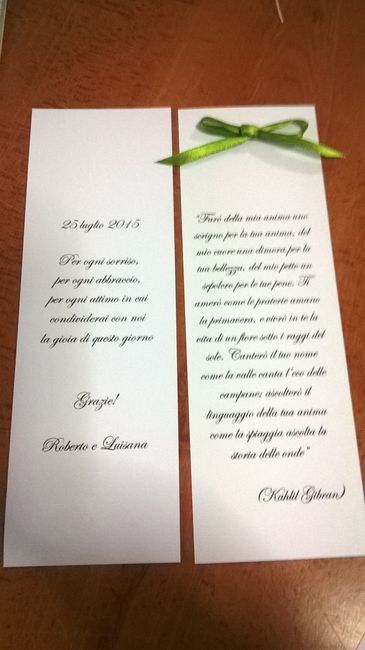 25 luglio 2015
Per ogni sorriso,
per ogni abbraccio,
per ogni attimo in cui
condividerai con noi
la gioia di questo giorno
Grazie!
Roberto e Luisana
"Farò della mia anima uno
scrigno per la tua anima, del
mio cuore una dimora per la
tua bellezza, del mio petto un
sepolcro per le tue pene. Ti
amerò come le praterie amano
la primavera, e vivrò in te la
vita di un fiore sotto i raggi del
sole. Canterò il tuo nome
come la valle canta l'eco delle
campane; ascolterò il
linguaggio della tua anima
come la spiaggia ascolta la
storia delle onde"
(Kahlil Gibran)